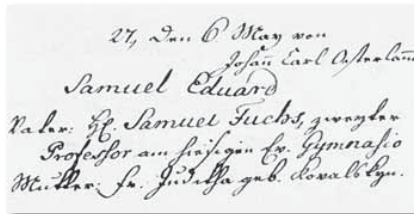 27, den 6 May von
Johañ Carl Osterlam
Samuel Eduard
Vater: H. Samuel Fuchs, zweyter
Professor am hiesigen Ev. Gymnasio
Mutter: Fr. Juditha geb. Kovalskyn.